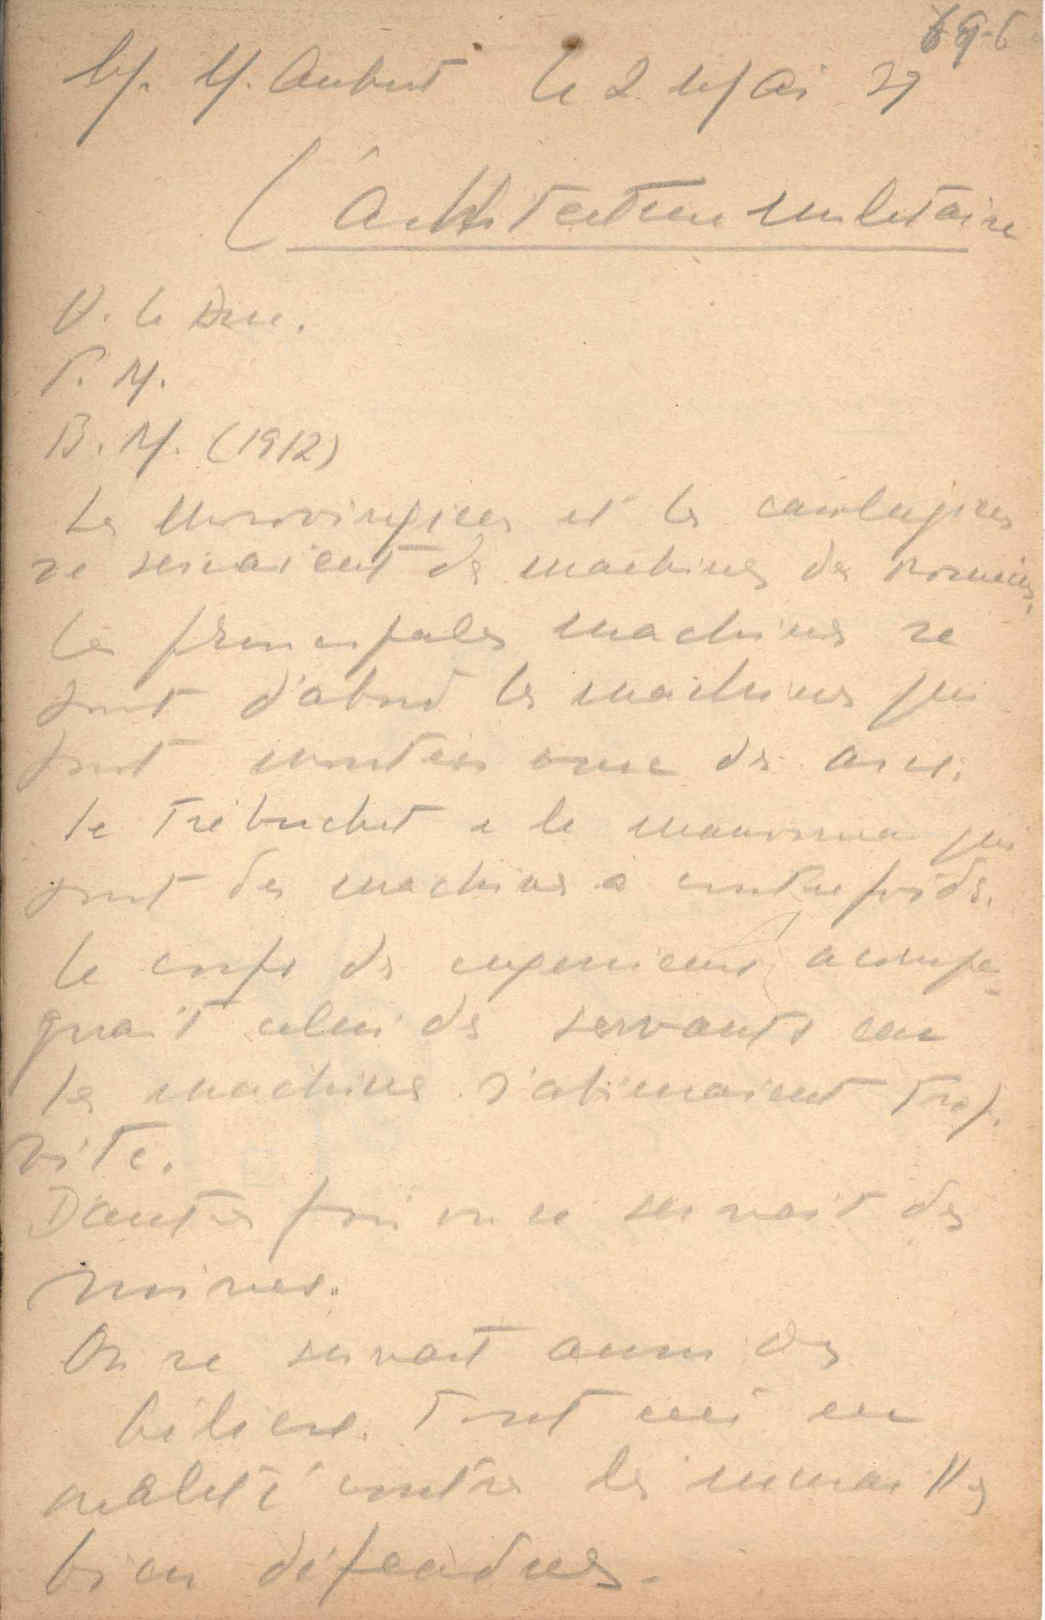 M. M. Aubert Le 2 Mai 29
L'Architecture militaire
V. le Duc.
T. M.
B. M. (1912)
Les Merovingiens et les carolingiens
se servaient des machines des romains.
Les principales machines ce
sont d'abord les machines qui
sont montées avec des arcs.
Le trébuchet e le qui
sont des machines a contrepoids.
Le corps des ingenieurs accompa-
gnait celui des servants car
les machines s'abimaient trop
vite.
D'autres fois on se servait des
mines.
On se servait aussi des
béliers. Tout ceci en
realité contre les murailles
bien défendues.